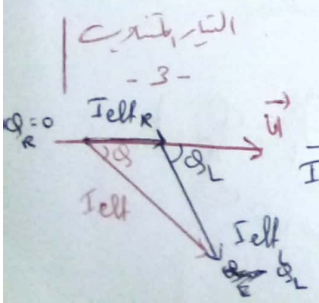 التيار المتناوب
- 3 -
φ_R=0 Ieff_R U
φ φ_L I
Ieff Ieff_L
φ_L